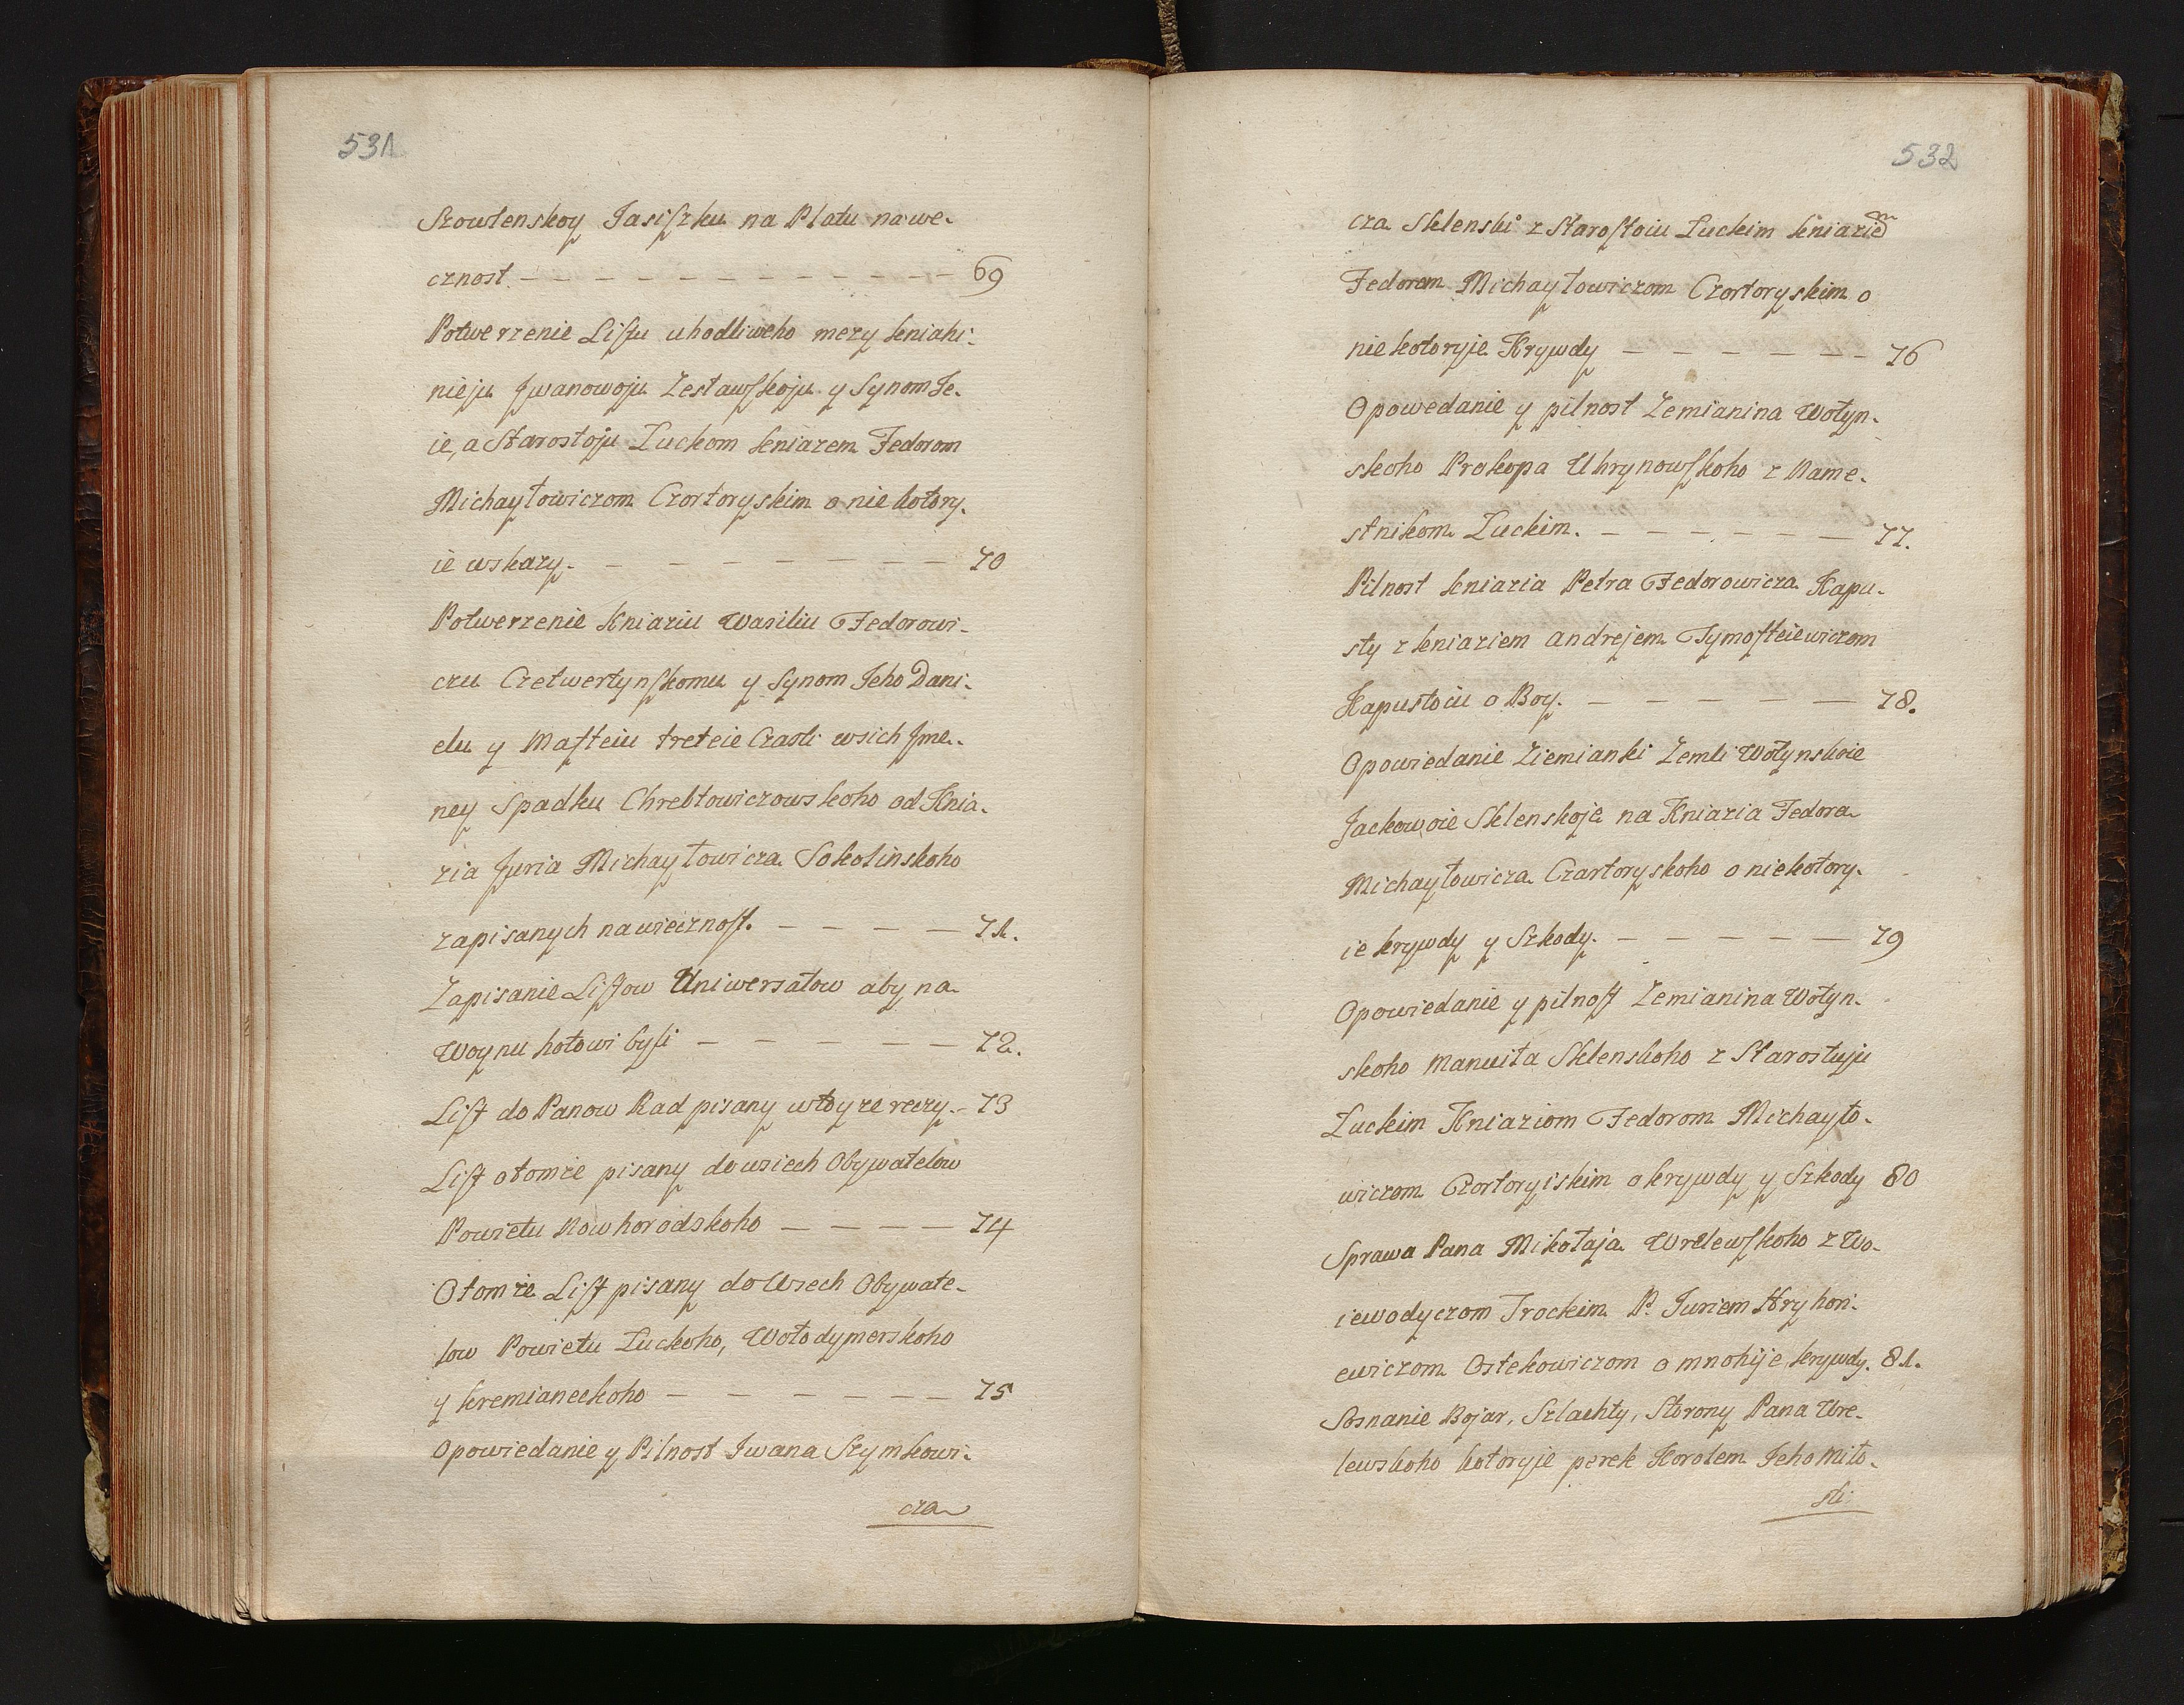 531
Szowlenskoy Jasiszku na Platu na we-
cznost. — — — — — — — — — — 69
Potwerzenie Listu uhodliweho mezy kniahi-
nieju Jwanowoju Zesławskoju y Synom Je-
ie, a Starostoju Łuckom kniazem Fedorom
Michayłowiczom Czortoryskim o niekotory-
ie wskazy. — — — — — — — 70
Potwerzenie Kniaziu Wasiliu Fedorowi-
czu Czetwertynskomu y Synom Jeho Dani-
elu y Matfeiu treteie Czasti wsich Jme-
ney Spadku Chrebtowiczowskoho od Knia-
zia Juria Michayłowicza Sokolinskoho
zapisanych nawiecznost. — — — — 71.
Zapisanie Listow Uniwersałow aby na
Woynu hotowi byli — — — — — 72.
List do Panow Rad pisany wtoyze reczy. - 73
List otomże pisany do wsiech Obywatelow
Powietu Nowhorodskoho — — — — 74
Otomże List pisany do Wsech Obywate-
low Powietu Łuckoho, Wołodymerskoho
y kremianeckoho — — — — — — 75
Opowiedanie y Pilnost Jwana Szymkowi-
cza
532
cza Sklenski z Starostoiu Łuckim kniaziem
Fedorom Michayłowiczom Czortoryskim o
niekotoryje Krywdy — — — — — — 76
Opowedanie y pilnost Zemianina Wołyn-
skoho Prokopa Uhrynowskoho z Name-
stnikom Łuckim. — — — — — — 77.
Pilnost kniazia Petra Fedorowicza Kapu-
sty z kniaziem andrejem Tymofteiewiczom
Kapustoiu o Boy. — — — — — 78.
Opowiedanie Ziemianki Zemli Wołynskoie
Jackowoie Sklenskoje na Kniazia Fedora
Michayłowicza Czartoryskoho o niekotory-
ie krywdy y Szkody. — — — — — 79
Opowiedanie y pilnost Zemianina Wołyn-
skoho Manuiła Sklenskoho z Starostuju
Łuckim Kniaziom Fedorom Michayło-
wiczom Czortoryiskim o krywdy y Szkody 80
Sprawa Pana Mikołaja Wrelewskoho z Wo-
iewodyczom Trockim P. Juriem Hryhori-
ewiczom Ostekowiczom o mnohije krywdy. 81.
Sosnanie Bojar, Szlachty, Storony Pana Wre-
lewskoho kotoryje perek Korolem Jeho Miło-
sti